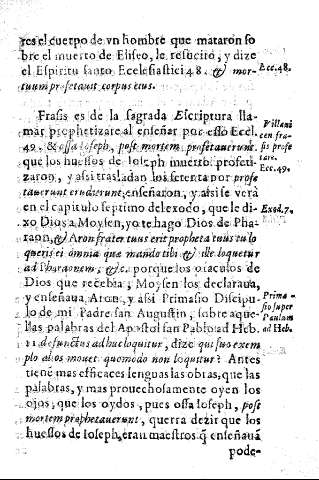 res el cuerpo de vn hombre que mataron so
bre el muerto de Eliseo, le resucitò, y dize
el Espiritu santo Ecclesiastici 48. & mor-
tuum profetauit corpus eius.
Ecc. 48.
Frasis es de la sagrada Escriptura lla-
mar prophetizare al enseñar por esso Eccl.
49. & ossa Ioseph, post mortem profetauerunt
que los huessos de Ioseph muerto profeti-
zaron, y assi trasladan los setenta por profe
tauerunt erudierunt, enseñaron, y assi se verà
en el capitulo septimo del exodo, que le di-
xo Dios a Moysen, yo te hago Dios de Pha-
raon, & Aron frater tuus erit propheta tuus tu lo
queris ei omnia quæ mando tibi & ille loquetur
ad Pharaonem, &c. porque los oraculos de
Dios que recebia, Moysen los declaraua,
y enseñaua Aron, y assi Primasio Discipu-
lo de mi Padre san Augustin, sobre aque-
llas palabras del Apostol san Pablo ad Heb.
11 defunctus ad huc loquitur, dize qui suo exem
plo alios mouet quomodo non loquitur? Antes
tienē mas efficaces lenguas las obras, que las
palabras, y mas prouechosamente oyen los
ojos, que los oydos, pues ossa Ioseph, post
mortem prophetauerunt, querra dezir que los
huessos de Ioseph, eran maestros q̃ enseñauā
pode-
Villani
cen fra-
sis profe
tare.
Ecc. 49.
Exod. 7.
Prima-
sio super
Paulum
ad Heb.